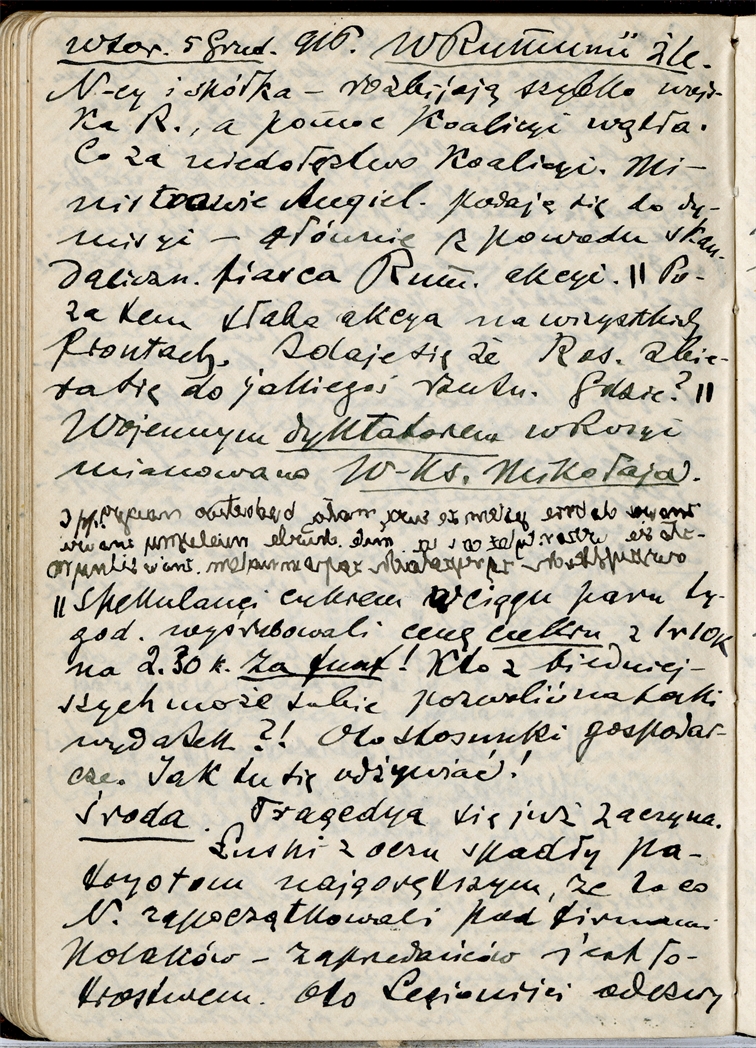 wtor. 5 Grud. 916. W Rumunii źle.
N-cy i spółka – rozbijają szybko wojs-
ka R., a pomoc Koalicyi wątła.
Co za niedołęstwo Koalicyi. Mi-
nistrowie Angiel. podają się do dy-
misyi – głównie z powodu skan-
daliczn. fiasca Rum. akcyi. || Po-
za tem słaba akcya na wszystkich
frontach. Zdaje się że Ros. zbie-
ra się do jakiegoś rzutu. Gdzie? ||
Wojennym dyktatorem w Rosyi
mianowano W-Ks. Mikołaja.
|| Spekulanci cukrem w ciągu paru ty-
god. wyśrubowali cenę cukru z
na 2.30 k. za funt! Kto z biedniej-
szych może sobie pozwolić na taki
wydatek?! Oto stosunki gospodar-
cze. Jak tu się odżywiać!
Środa. Tragedya się już zaczyna.
Łuski z oczu spadły pa-
tryotom najgorętszym, że to co
N. zapoczątkowali pod firmami
Polaków – zaprzedańców jest ło-
trostwem. Oto Legioniści odezwy